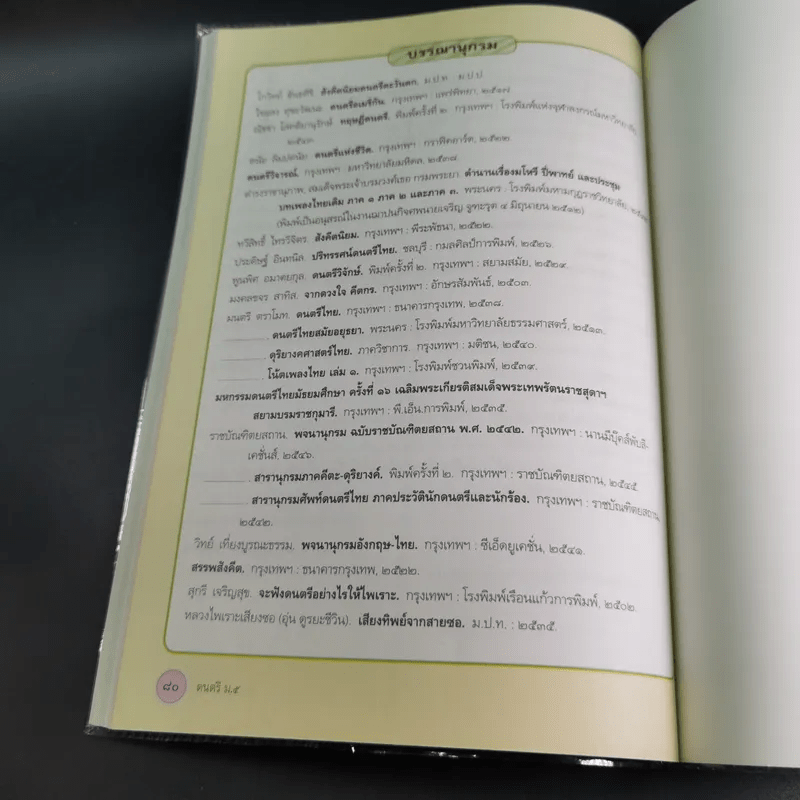 บรรณานุกรม
สังคีตนิยมดนตรีตะวันตก. ม.ป.ท. ม.ป.ป.
ไขแสง ศุขะวัฒนะ. ดนตรีอเมริกัน. กรุงเทพฯ : แพร่พิทยา, ๒๕๑๗
ณัชชา โสคติยานุรักษ์. ทฤษฎีดนตรี. พิมพ์ครั้งที่ ๒. กรุงเทพฯ : โรงพิมพ์แห่งจุฬาลงกรณ์มหาวิทยาลัย,
ดนตรีแห่งชีวิต. กรุงเทพฯ : กราฟิคอาร์ต, ๒๕๒๒.
ดนตรีวิจารณ์. กรุงเทพฯ : มหาวิทยาลัยมหิดล, ๒๕๓๘.
ดำรงราชานุภาพ, สมเด็จพระเจ้าบรมวงศ์เธอ กรมพระยา. ตำนานเรื่องมโหรี ปี่พาทย์ และประชุม
บทเพลงไทยเดิม ภาค ๑ ภาค ๒ และภาค ๓. พระนคร : โรงพิมพ์มหามกุฏราชวิทยาลัย,
(พิมพ์เป็นอนุสรณ์ในงานฌาปนกิจศพนายเจริญ จูฑะรุต ๔ มิถุนายน ๒๕๑๒)
ทวีสิทธิ์ ไทรวิจิตร. สังคีตนิยม. กรุงเทพฯ : พีระพัธนา, ๒๕๒๒.
ประดิษฐ์ อินทนิล. ปริทรรศน์ดนตรีไทย. ชลบุรี : กมลศิลป์การพิมพ์, ๒๕๒๖.
พูนพิศ อมาตยกุล. ดนตรีวิจักษ์. พิมพ์ครั้งที่ ๒. กรุงเทพฯ : สยามสมัย, ๒๕๒๙.
มงคลขจร สาทิส. จากดวงใจ คีตกร. กรุงเทพฯ : อักษรสัมพันธ์, ๒๕๐๓.
มนตรี ตราโมท. ดนตรีไทย. กรุงเทพฯ : ธนาคารกรุงเทพ, ๒๕๓๘.
________. ดนตรีไทยสมัยอยุธยา. พระนคร : โรงพิมพ์มหาวิทยาลัยธรรมศาสตร์, ๒๕๑๓.
________. ดุริยางคศาสตร์ไทย. ภาควิชาการ. กรุงเทพฯ : มติชน, ๒๕๔๐.
________. โน้ตเพลงไทย เล่ม ๑. กรุงเทพฯ : โรงพิมพ์ชวนพิมพ์, ๒๕๓๙.
มหกรรมดนตรีไทยมัธยมศึกษา ครั้งที่ ๑๖ เฉลิมพระเกียรติสมเด็จพระเทพรัตนราชสุดาฯ
สยามบรมราชกุมารี. กรุงเทพฯ : พี.เอ็น.การพิมพ์, ๒๕๓๕.
ราชบัณฑิตยสถาน. พจนานุกรม ฉบับราชบัณฑิตยสถาน พ.ศ. ๒๕๔๒. กรุงเทพฯ : นานมีบุ๊คส์พับลิ-
เคชั่นส์, ๒๕๔๖.
________. สารานุกรมภาคคีตะ-ดุริยางค์. พิมพ์ครั้งที่ ๒. กรุงเทพฯ : ราชบัณฑิตยสถาน, ๒๕๔๕.
________. สารานุกรมศัพท์ดนตรีไทย ภาคประวัตินักดนตรีและนักร้อง. กรุงเทพฯ : ราชบัณฑิตยสถาน,
๒๕๔๒.
วิทย์ เที่ยงบูรณะธรรม. พจนานุกรมอังกฤษ-ไทย. กรุงเทพฯ : ซีเอ็ดยูเคชั่น, ๒๕๔๑.
สรรพสังคีต. กรุงเทพฯ : ธนาคารกรุงเทพ, ๒๕๒๒.
สุกรี เจริญสุข. จะฟังดนตรีอย่างไรให้ไพเราะ. กรุงเทพฯ : โรงพิมพ์เรือนแก้วการพิมพ์, ๒๕๐๒.
หลวงไพเราะเสียงซอ (อุ่น ดูรยะชีวิน). เสียงทิพย์จากสายซอ. ม.ป.ท. : ๒๕๓๕.
๘๐ ดนตรี ม.๕